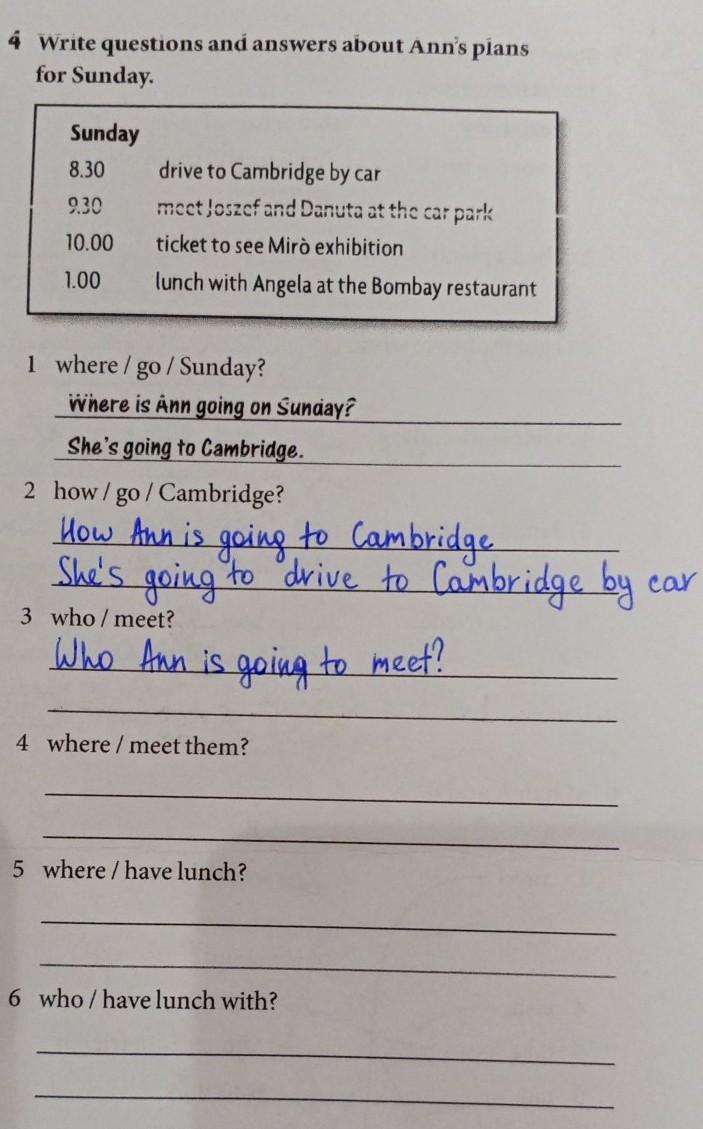 4 Write questions and answers about Ann's plans
for Sunday.
Sunday
8.30 drive to Cambridge by car
9.30 meet Joszef and Danuta at the car park
10.00 ticket to see Mirò exhibition
1.00 lunch with Angela at the Bombay restaurant
1 where / go / Sunday?
Where is Ann going on Sunday?
She's going to Cambridge.
2 how / go / Cambridge?
How Ann is going to Cambridge
She's going to drive to Cambridge by car
3 who / meet?
Who Ann is going to meet?
4 where / meet them?
5 where / have lunch?
6 who / have lunch with?